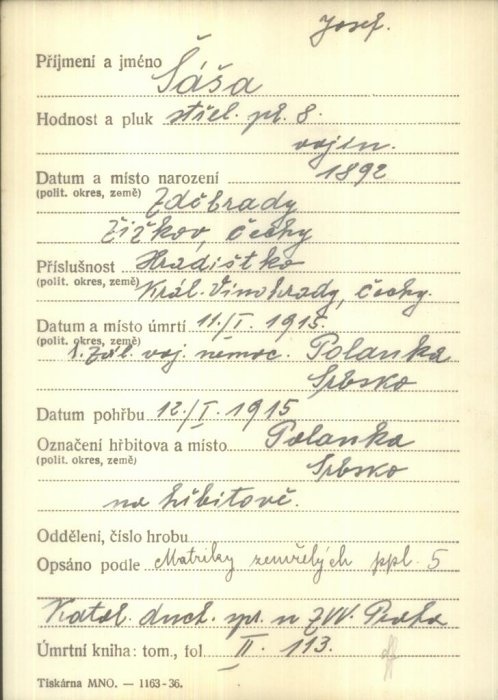 Josef.
Příjmení a jméno Šáša
Hodnost a pluk střel. pl. 8.
vojín.
Datum a místo narození 1892
(polit. okres, země) Zděbrady
Žižkov, Čechy
Příslušnost Hradištko
(polit. okres, země) Král. Vinohrady, Čechy.
Datum a místo úmrtí 11./I. 1915.
(polit. okres, země) 1. zál. voj. nemoc. Polanka
Srbsko
Datum pohřbu 12./I. 1915
Označení hřbitova a místo Polanka
(polit. okres, země) Srbsko
na hřbitově.
Oddělení, číslo hrobu
Opsáno podle Matriky zemřelých ppl. 5
Katol. duch. spr. u ZVV. Praha
Úmrtní kniha: tom., fol II. 113.
Tiskárna MNO. — 1163-36.